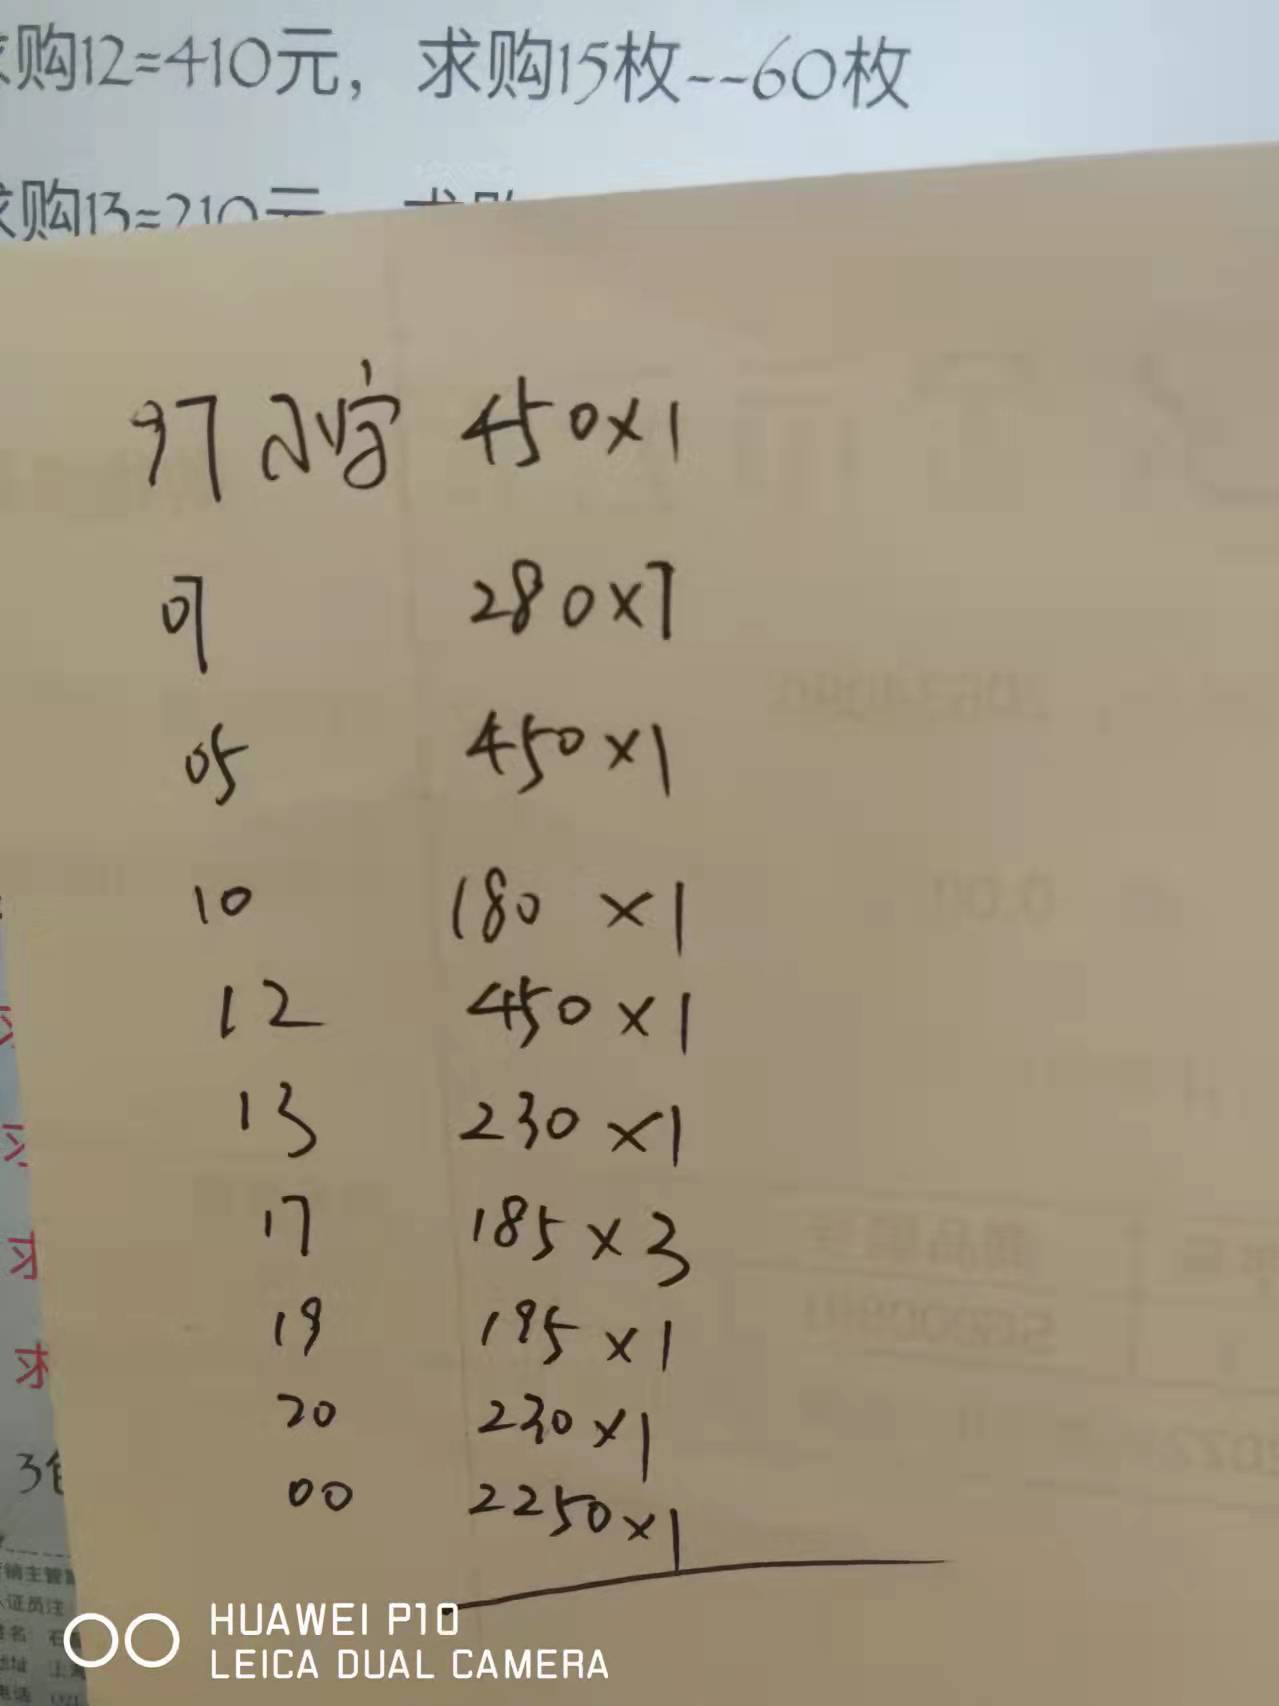 求购12=410元，求购15枚--60枚
求购13=210元 求购
97小字 450×1
07 280×7
05 450×1
10 180×1
12 450×1
13 230×1
17 185×3
19 195×1
20 230×1
00 2250×1
求
求
HUAWEI P10
LEICA DUAL CAMERA